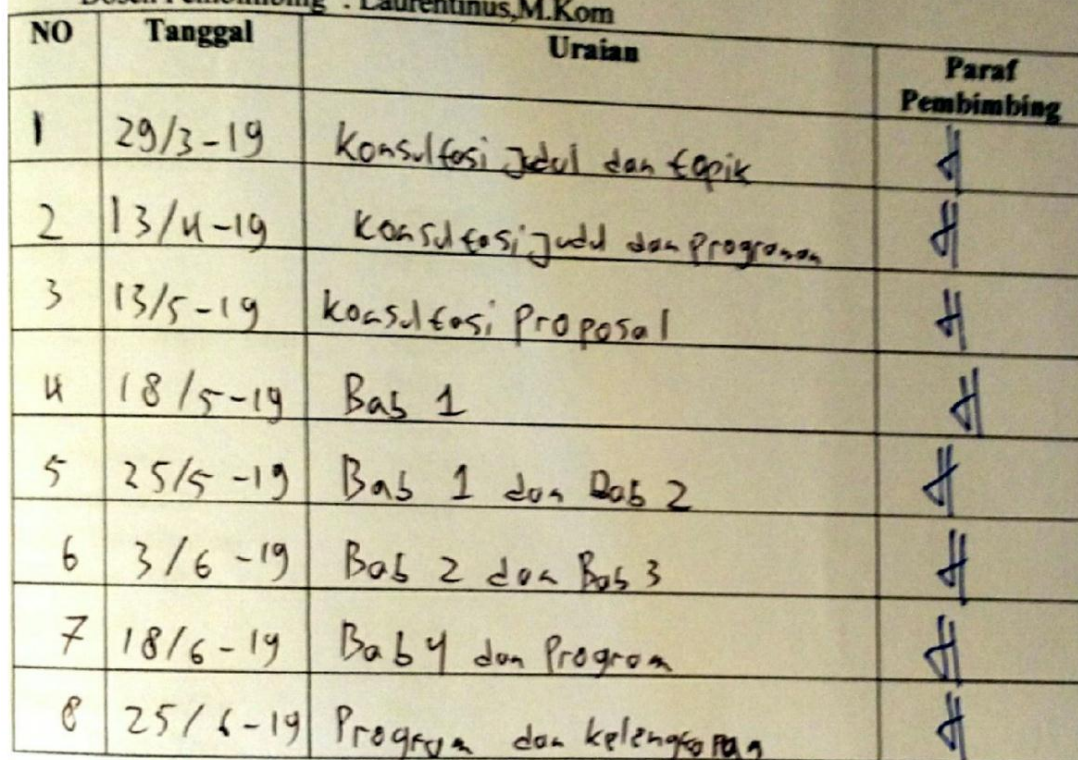 Dosen Pembimbing : Laurentinus,M.Kom
NO Tanggal Uraian Paraf Pembimbing
1 29/3-19 Konsultasi Judul dan topik
2 13/4-19 Konsultasi Judul dan Program
3 13/5-19 Konsultasi Proposal
4 18/5-19 Bab 1
5 25/5-19 Bab 1 dan Bab 2
6 3/6-19 Bab 2 dan Bab 3
7 18/6-19 Bab 4 dan Program
8 25/6-19 Program dan kelengkapan